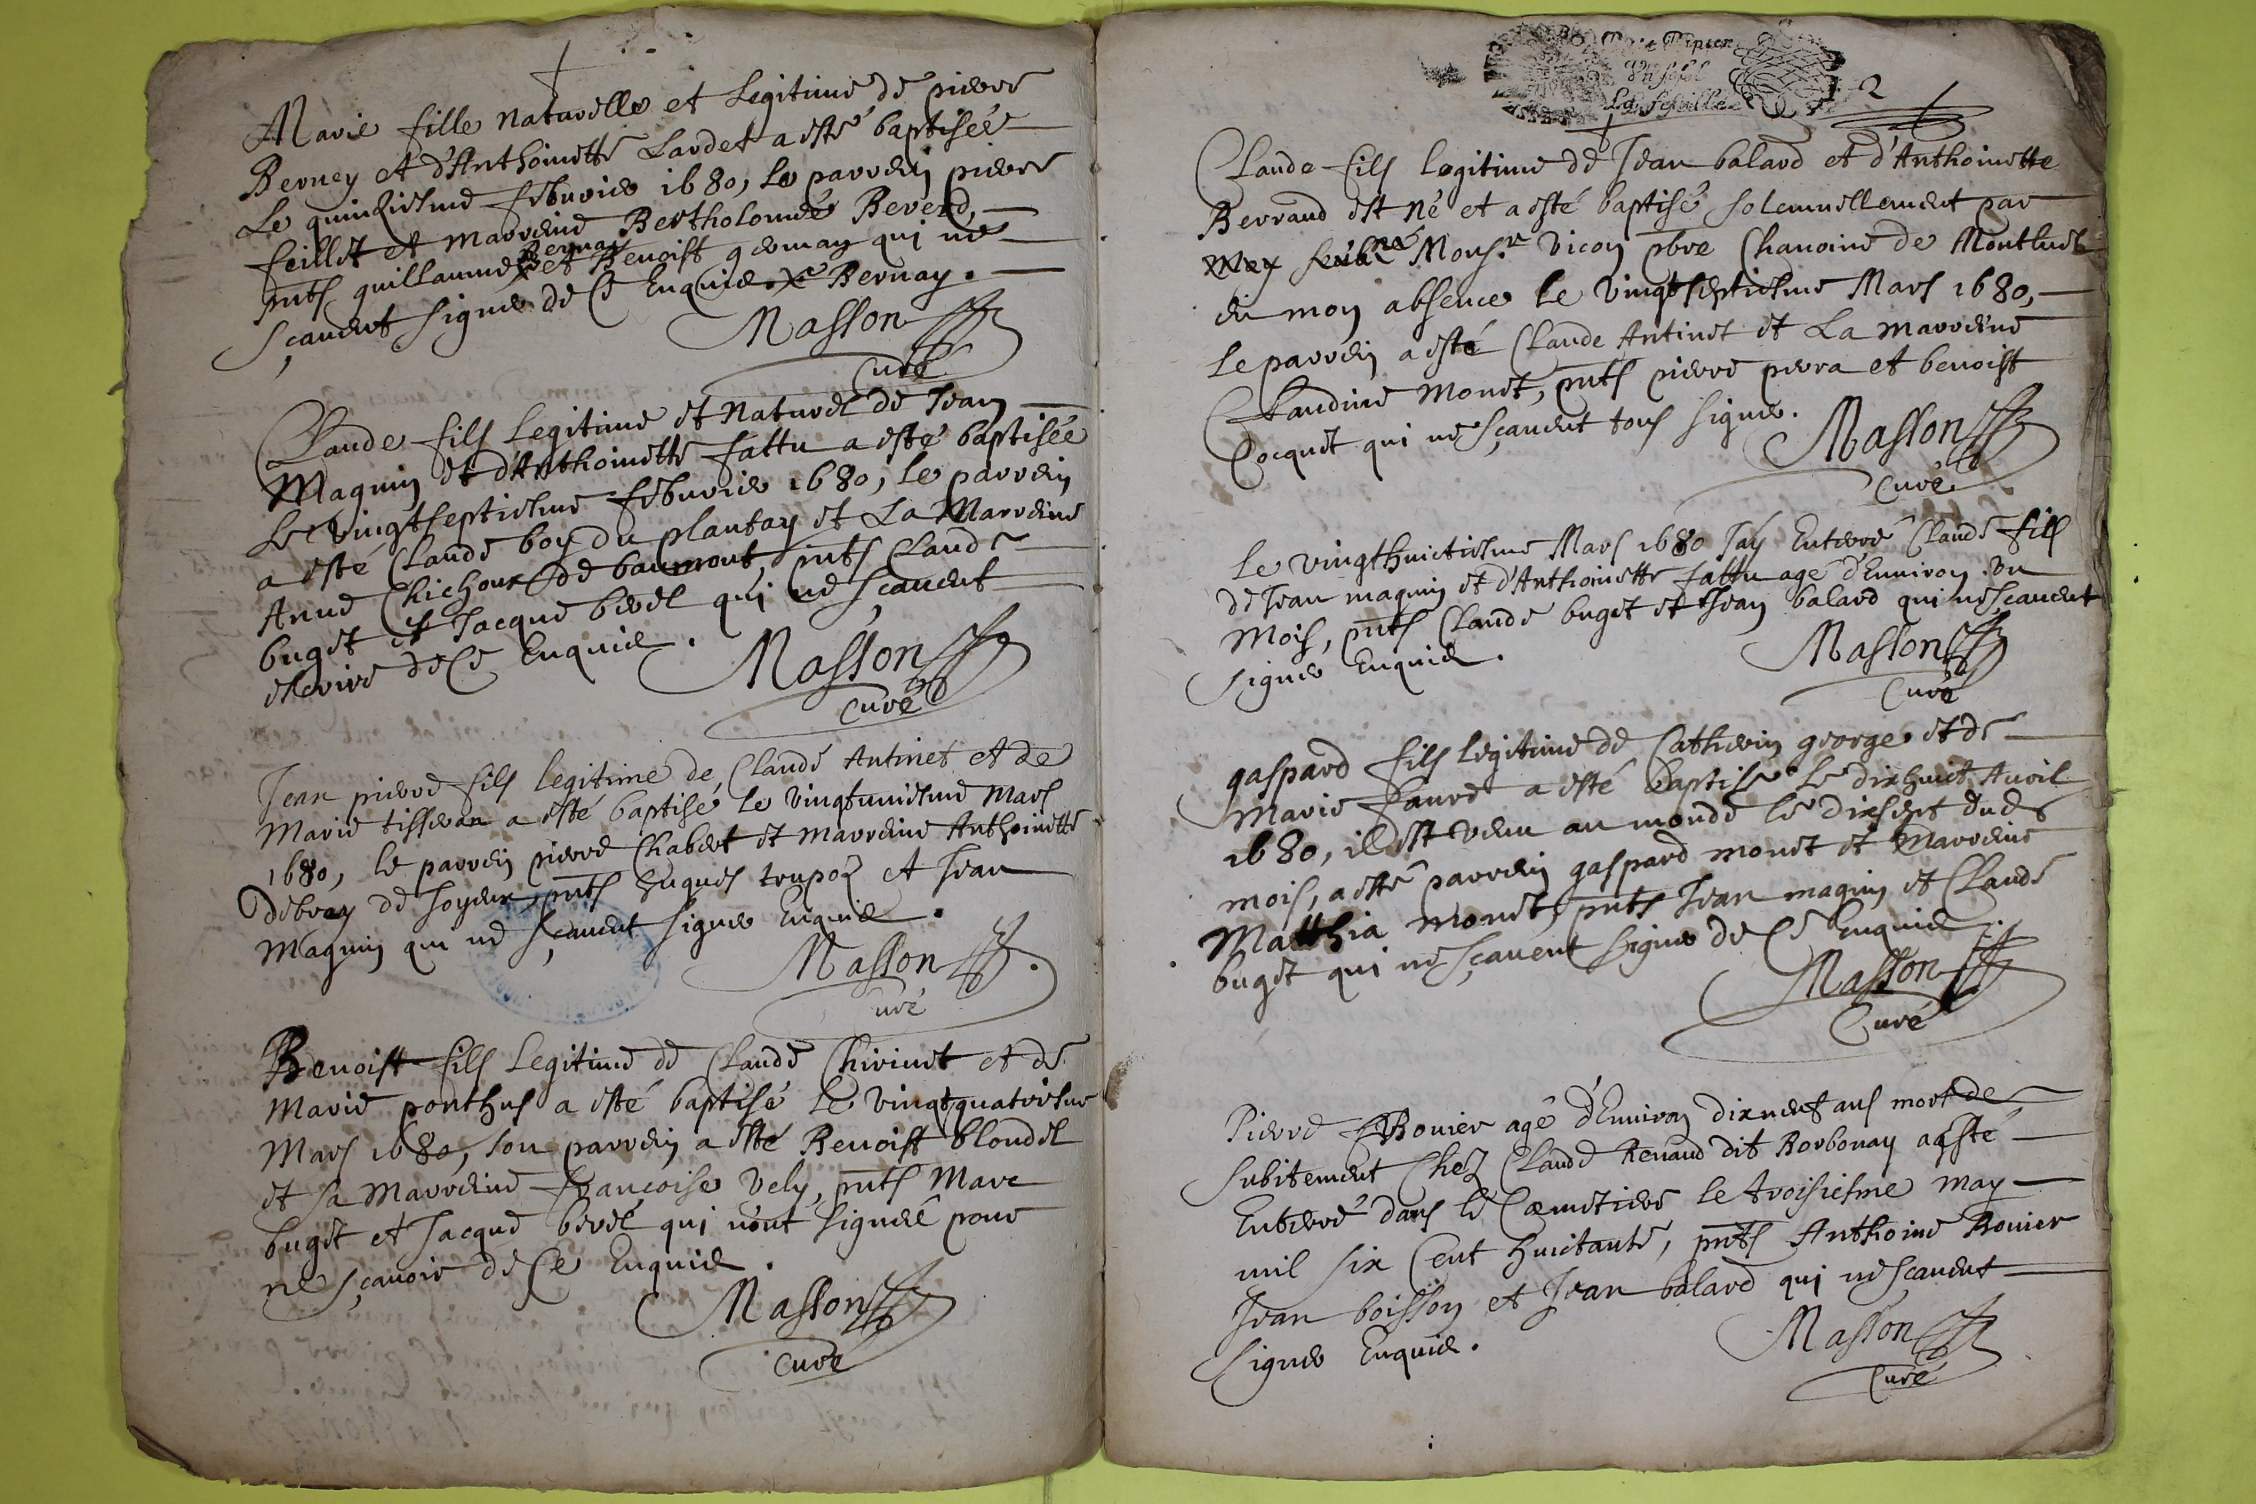 Marie fille naturelle et legitime de pierre
Berney et d'Anthoinette Lardet a esté baptisée
Le quinziesme feburier 1680, le parrein pierre
feillet et marreine Bertholomée Reverd,
pnts guillaume Bernay et Benoist germay qui ne
sçauent signer de ce Enquis. Bernay.
Masson
Curé
Claude fils legitime et naturel de Jean
Maguin et d'Anthoinette fattu a esté baptisée
Le vingtseptiesme feburier 1680, le parrein
a esté Claude boy du plantay et La Marreine
Anne Chichoux de baumont, pnts Claude
buget et Jacque berel qui ne sçauent
escrire de ce Enquis.
Masson
Curé
Jean pierre fils legitime de Claude Antinet et de
Marie tisseran a esté baptisé le vingtuniesme Mars
1680, le parrein pierre Chabert et marreine Anthoinette
debray de Joyeux, pnts huques et Jean
Maguin qui ne sçauent signer Enquis.
Masson
Curé
Benoist fils Legitime de Claude Chirinet et de
Marie ponthus a esté baptisé le vingtquatriesme
Mars 1680, son parrein a esté Benoist blondel
et sa Marreine françoise Vely, pnts Marc
buget et Jacque berel qui n'ont signeré pour
ne sçauoir de ce Enquis.
Masson
Curé
Un sol
La feuille
2
Claude fils legitime de Jean balard et d'Anthoinette
Berraud est né et a esté baptisé solemnellement par
Monsr. Vicoy pbre Chanoine de Montluel
en mon absence le vingtseptiesme Mars 1680,
le parrein a esté Claude Antinet et La marreine
Claudine Monet, pnts pierre perra et benoist
Cocquet qui ne sçauent tous signer.
Masson
Curé
Le vingthuictiesme Mars 1680 J'ay Enterré Claude fils
de Jean maguin et d'Anthoinette fattu agé d'Enuiron un
Mois, pnts Claude buget et Jean balard qui ne sçauent
signer Enquis.
Masson
Curé
gaspard fils legitime de Catherin george et de
Marie faure a esté baptisé Le dixhuict Auril
1680, il est venu au monde le dixsept dudt
mois, a esté parrein gaspard monet et Marreine
Matthia monet, pnts Jean maguin et Claude
buget qui ne sçauent signer de ce Enquis
Masson
Curé
Pierre Rouier agé d'Enuiron dixneuf ans mort de
subitement Chez Claude Renaud dit Borbonay a esté
Enterré dans le Cæmetiere le troisiesme may
mil six Cent huictante, pnts Anthoine Rouier
Jean boisson et Jean balard qui ne sçauent
signer Enquis.
Masson
Curé